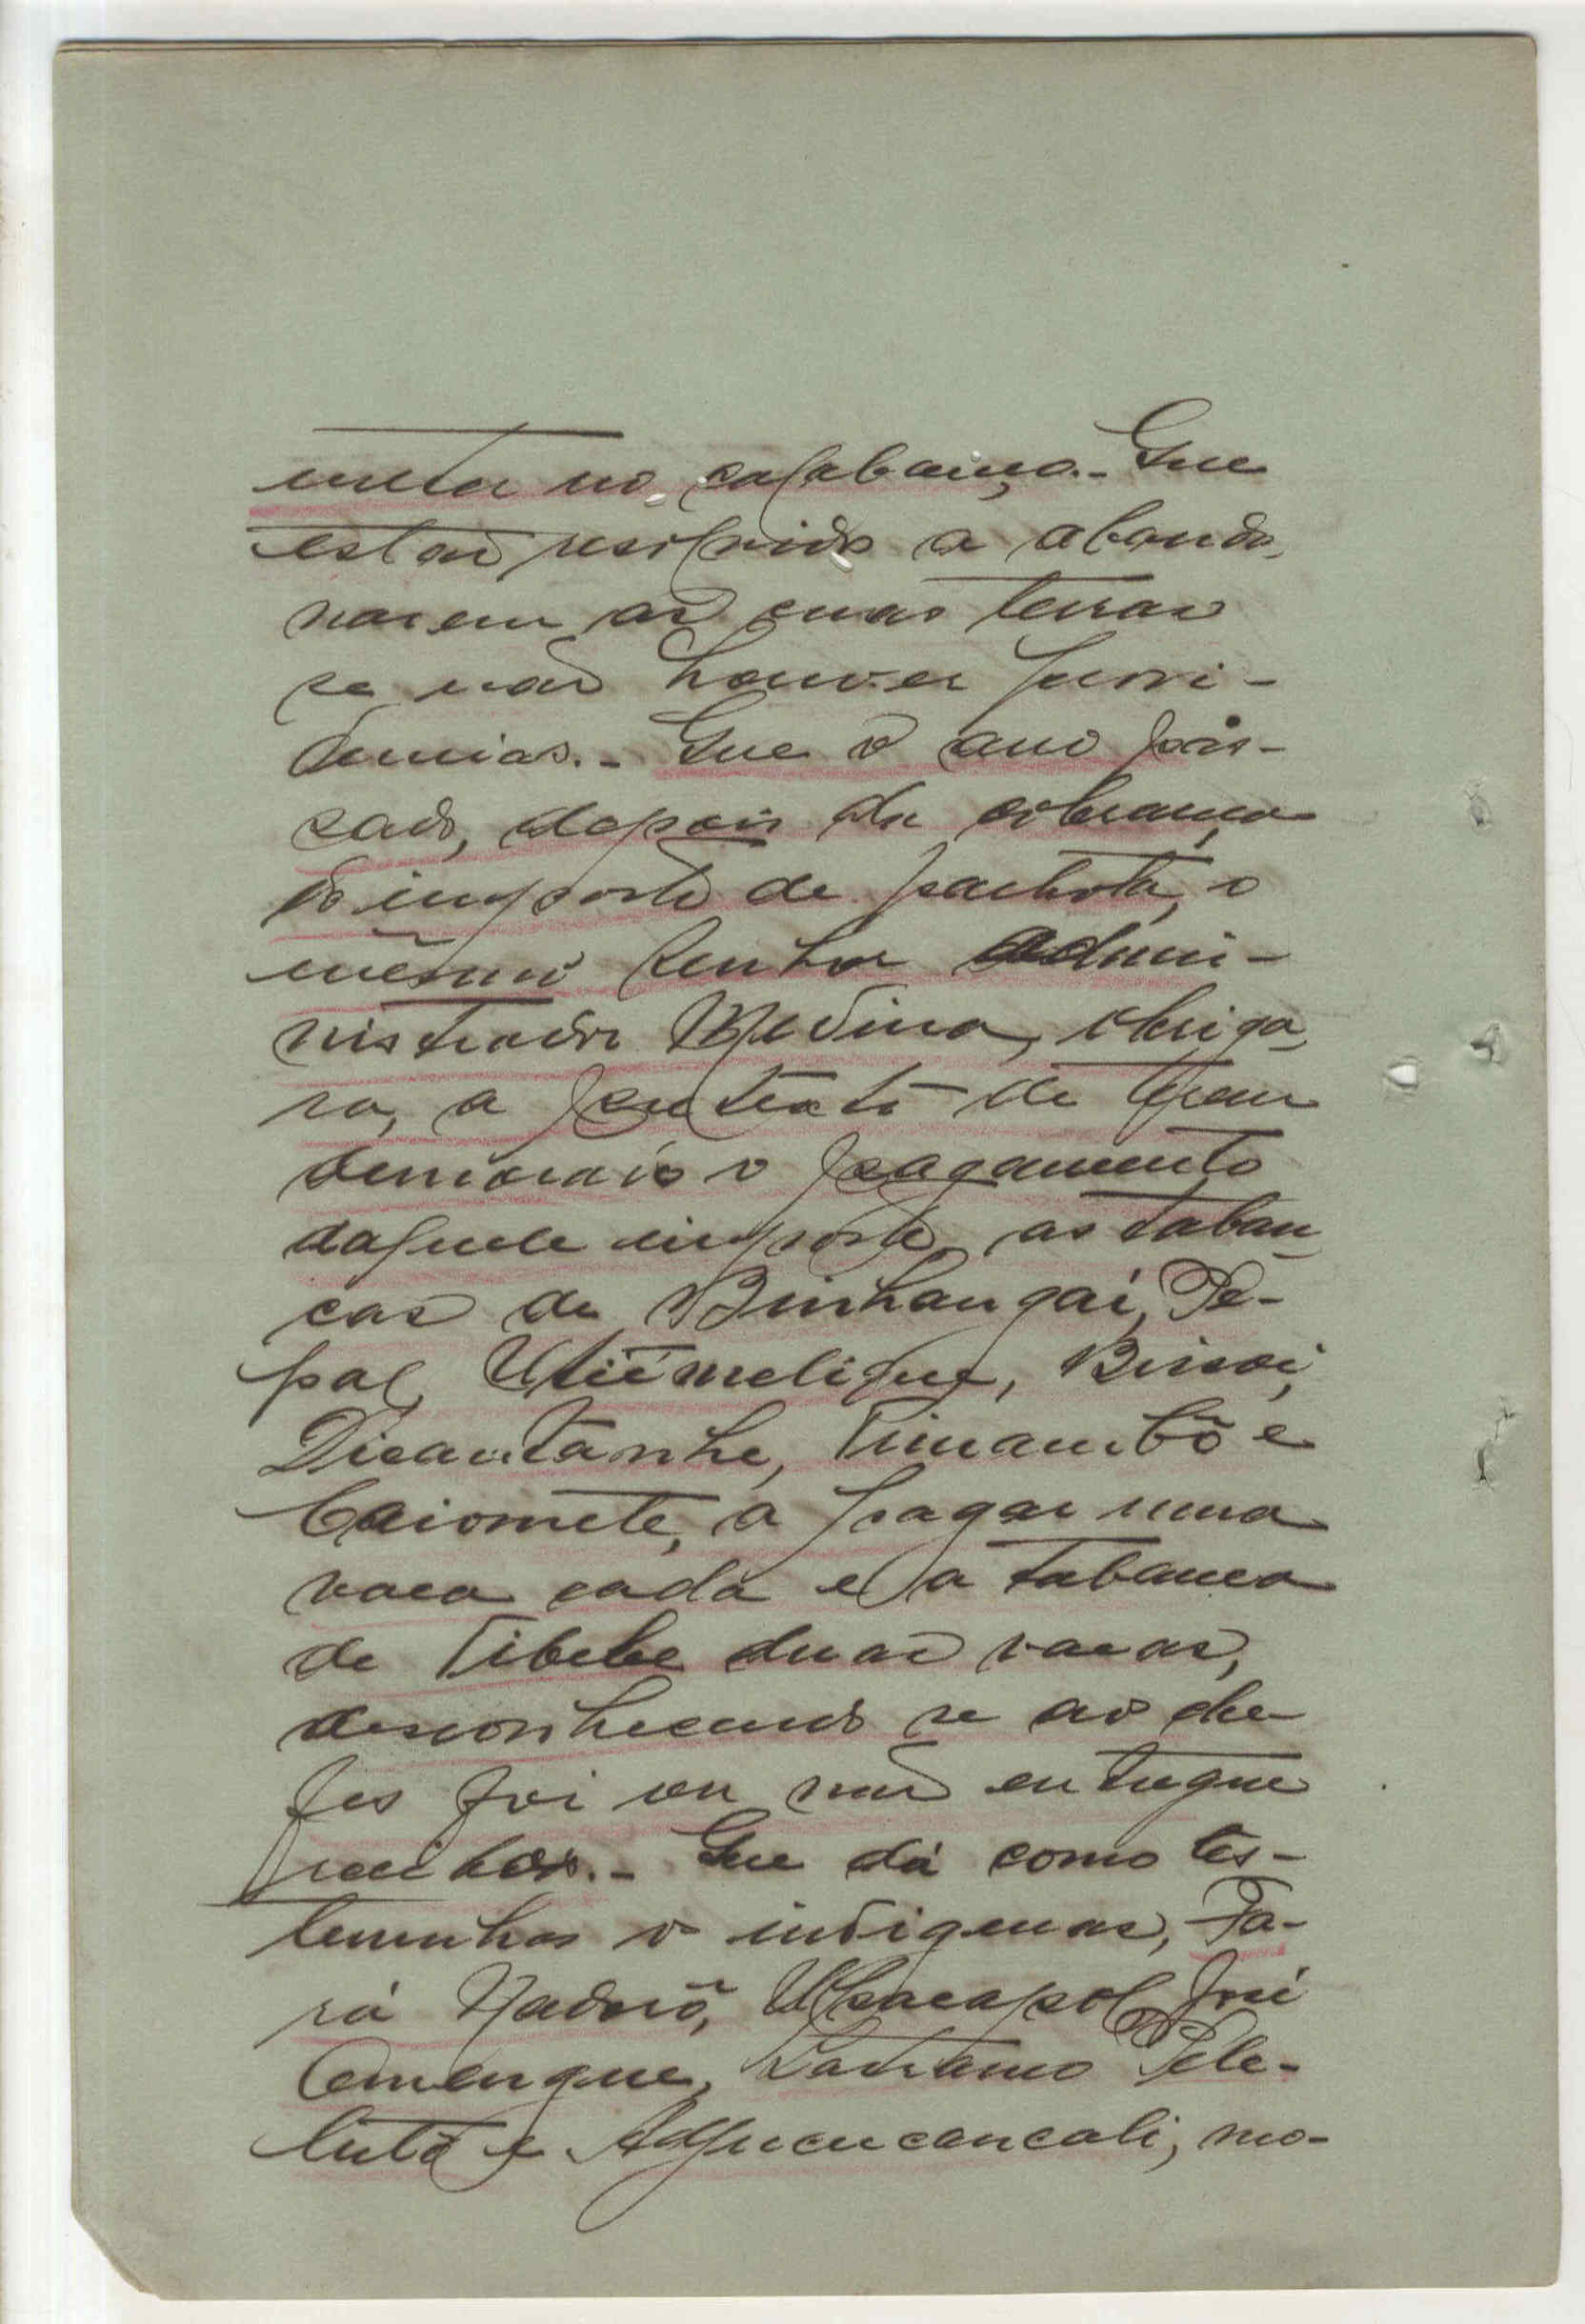 meter no calabouço.- Que
estão resolvidos a abando-
narem as suas terras
se não houver provi-
dencias.- Que o ano pas-
sado, depois da cobrança
do imposto de palhota, o
mesmo senhor admi-
nistrador Medina, obriga-
ra, a pretexto de terem
demorado o pagamento
daquele imposto, as taban-
cas de Binhangai, Pe-
pal, Utiemelique, Bissoi,
Dicantanhe, Timambõ e
Caiomete, a pagar uma
vaca cada e a tabanca
de Tibebe duas vacas,
desconhecendo se aos che-
fes foi ou não entregue
recibos.- Que dá como tes-
temunhas os indigenas, Fa-
rá Nadoró, José
Amengue, Pele-
e mo-